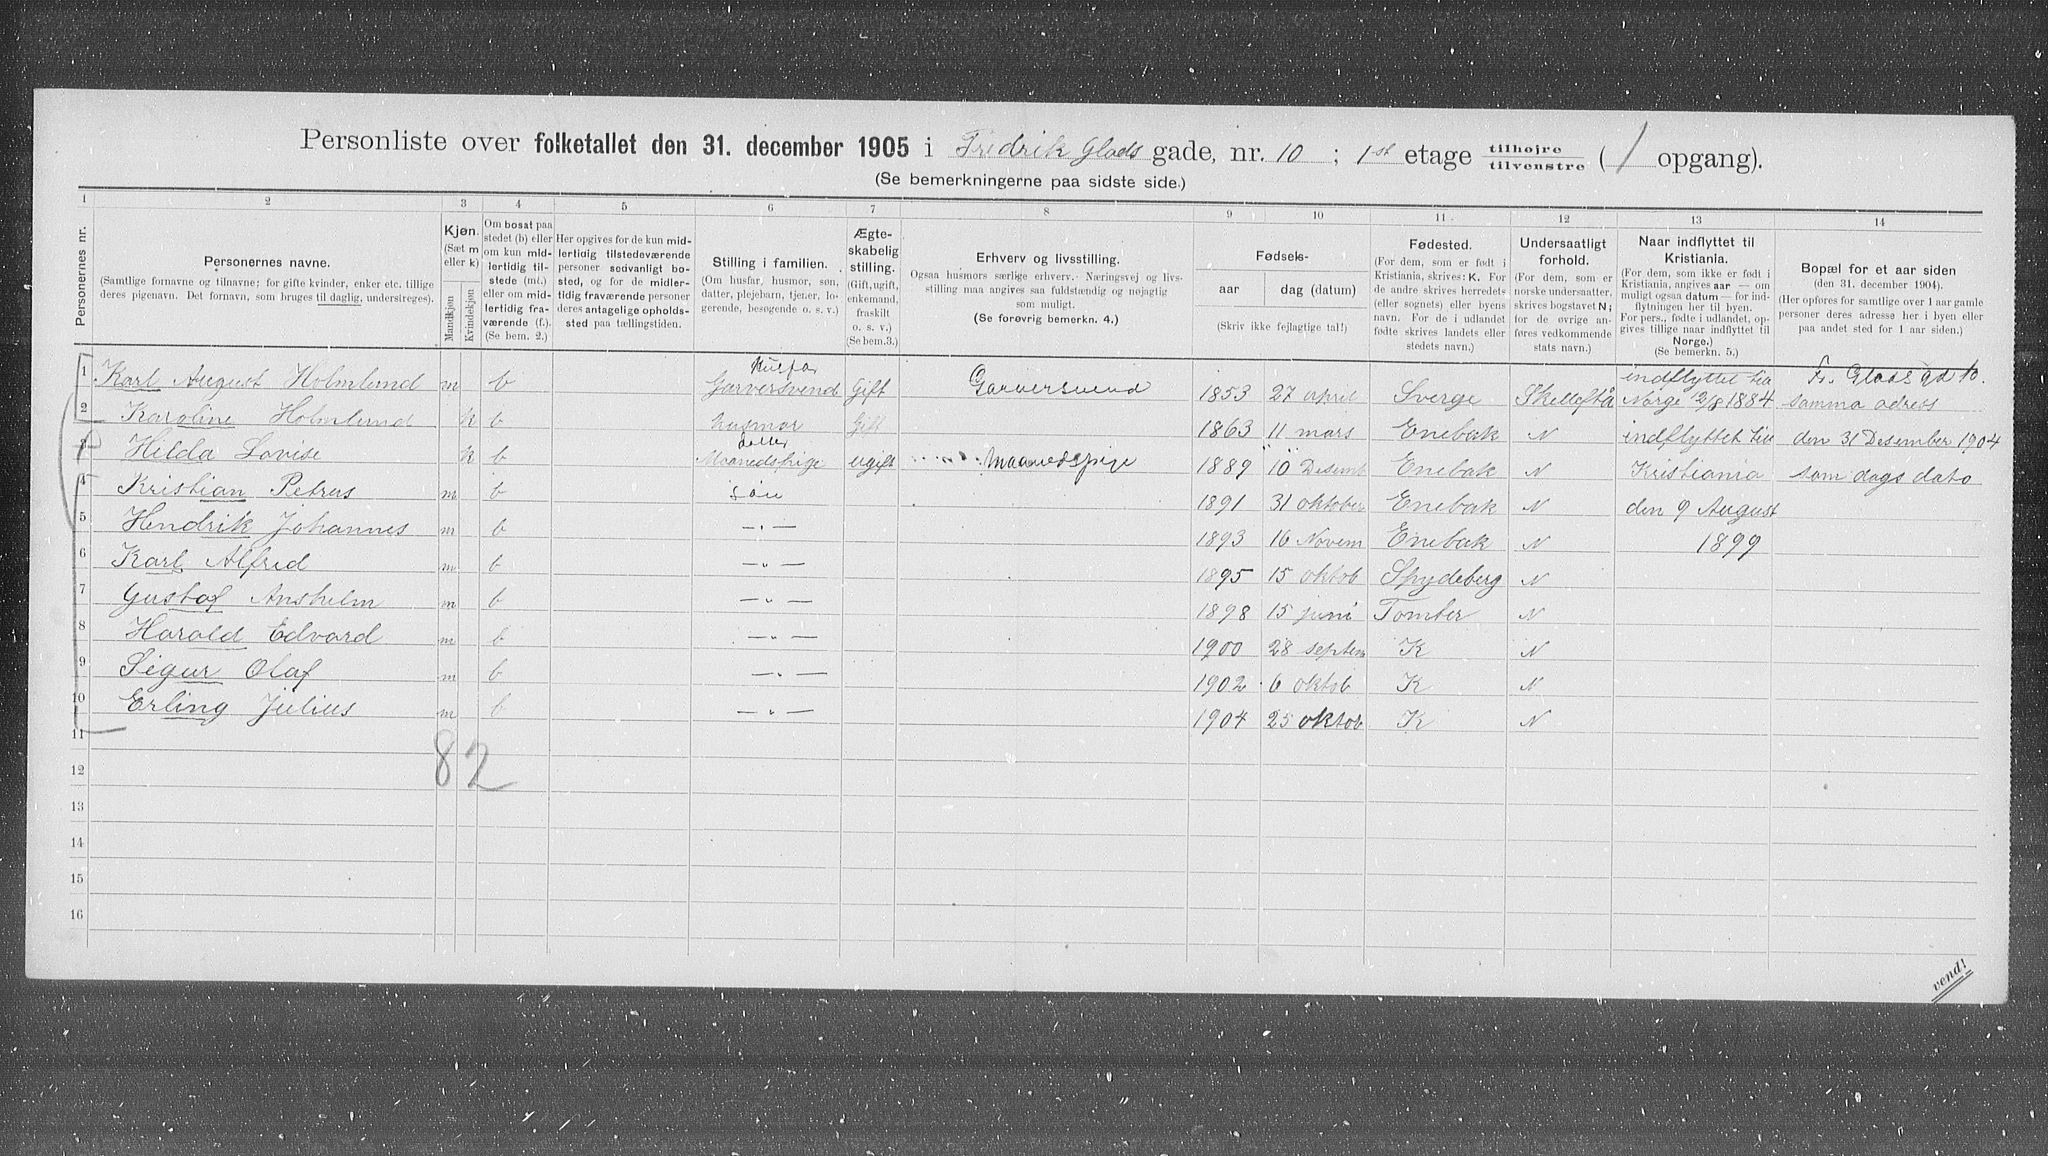 Personliste over folketallet den 31. december 1905 i Fredrik Glads gade, nr. 10 ; 1st etage tilhøjre tilvenstre ( 1 opgang).
(Se bemerkningerne paa sidste side.)
1 2 3 4 5 6 7 8 9 10 11 12 13 14
Personernes nr.
Personernes navne.
(Samtlige fornavne og tilnavne; for gifte kvinder, enker etc. tillige deres pigenavn. Det fornavn, som bruges til daglig, understreges).
Kjøn.
(Sæt m eller k)
Mandkjøn
Kvindekjøn
Om bosat paa stedet (b) eller om kun midlertidig tilstede (mt.) eller om midlertidig fraværende (f.). (Se bem. 2.)
Her opgives for de kun midlertidig tilstedeværende personer sedvanligt bosted, og for de midlertidig fraværende personer deres antagelige opholdssted paa tællingstiden.
Stilling i familien.
(Om husfar, husmor, søn, datter, plejebarn, tjener, logerende, besøgende o. s. v.)
Ægteskabelig stilling.
(Gift, ugift, enkemand, fraskilt o. s. v.)
(Se bem. 3.)
Erhverv og livsstilling.
Ogsaa husmors særlige erhverv. Næringsvej og livsstilling maa angives saa fuldstændig og nøjagtig som muligt.
(Se forøvrig bemerkn. 4.)
Fødsels-
aar
dag (datum)
(Skriv ikke fejlagtige tal!)
Fødested.
(For dem, som er født i Kristiania, skrives: K. For de andre skrives herredets (eller sognets) eller byens navn. For de i udlandet fødte skrives landets eller stedets navn.)
Undersaatligt forhold.
(For dem, som er norske undersaatter, skrives bogstavet N; for de øvrige anføres vedkommende stats navn.)
Naar indflyttet til Kristiania.
(For dem, som ikke er født i Kristiania, angives aar — om muligt ogsaa datum — for indflytningen her til byen. For pers., fødte i udlandet, opgives tillige naar indflyttet til Norge.)
(Se bemerkn. 5.)
Bopæl for et aar siden
(den 31. december 1904).
(Her opføres for samtlige over 1 aar gamle personer deres adresse her i byen eller paa andet sted for 1 aar siden.)
1 Karl August Holmlund m b Husfar Garversvend Gift Garversvend 1853 27 april Sverge Skelleftå indflyttet till Norge 12/8 1884 Fr. Glads gd 10. samma adress
2 Karoline Holmlund k b husmor Gift 1863 11 mars Enebak N indflyttet till den 31 Desember 1904
3 Hilda Lovise k b datter Maanedspige ugift maanedspige 1889 10 Desemb Enebak N Kristiania som dags dato
4 Kristian Petrus m b søn 1891 31 oktober Enebak N den 9 August
5 Hendrik Johannes m b — „ — 1893 16 Novem Enebak N 1899
6 Karl Alfred m b — „ — 1895 15 oktob Spydeberg N
7 Gustaf Anshelm m b — „ — 1898 15 juni Tomter N
8 Harald Edvard m b — „ — 1900 28 septem K N
9 Sigur Olaf m b — „ — 1902 6 oktob K N
10 Erling Julius m b — „ — 1904 25 oktob K N
11
82
12
13
14
15
16
vend!